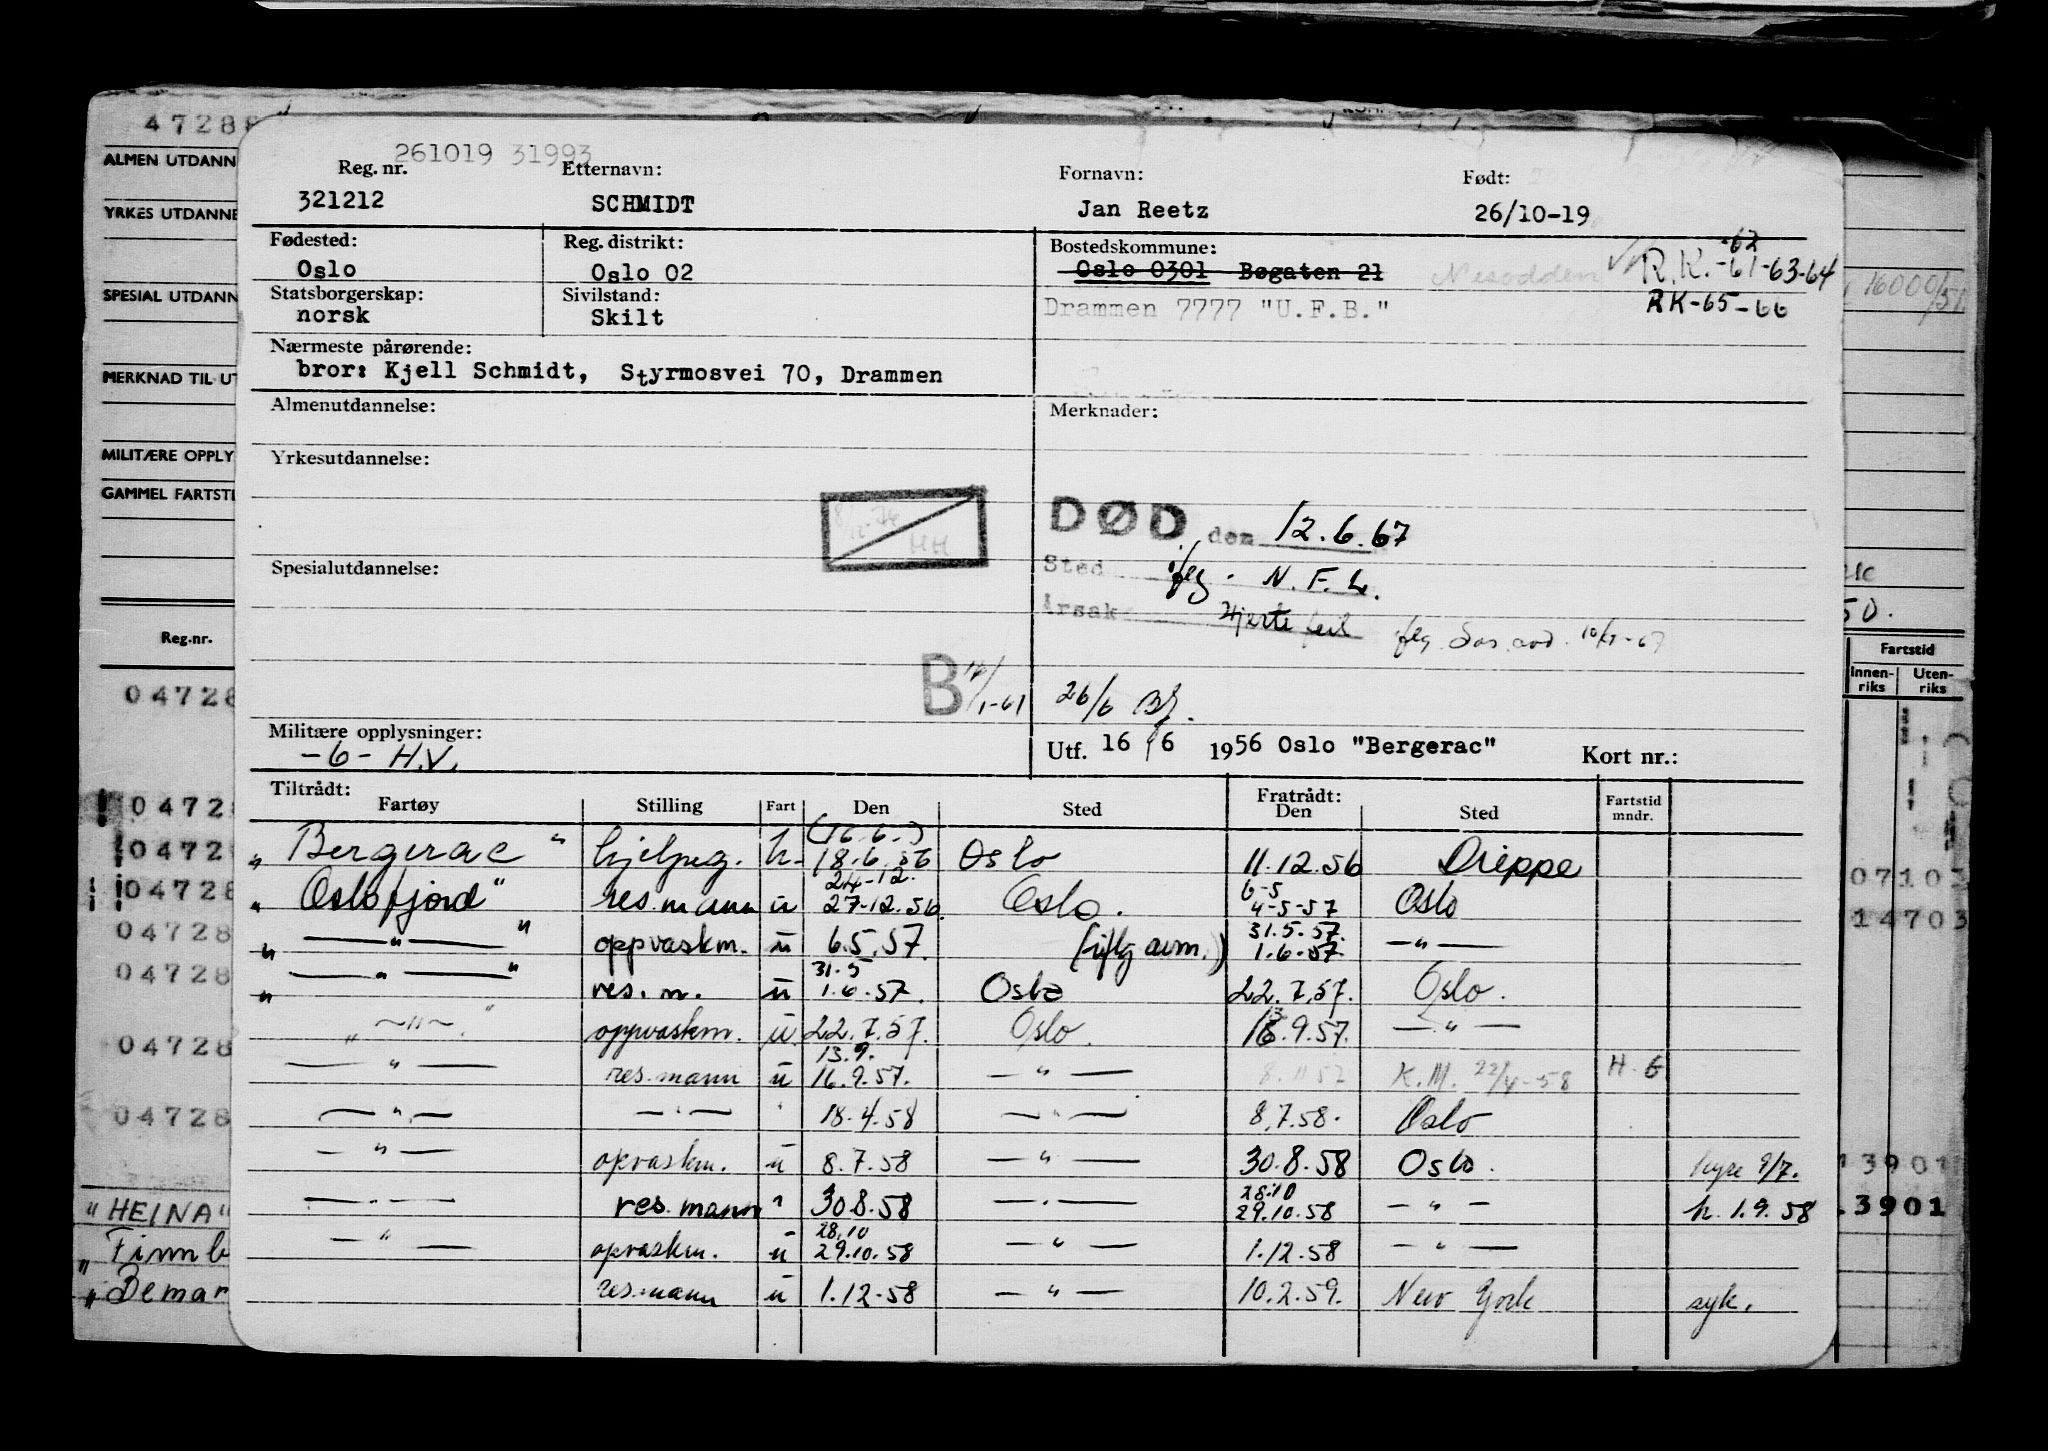 261019 31993
Reg. nr. Etternavn: Fornavn: Født:
321212 SCHMIDT Jan Reetz 26/10-19
Fødested: Reg. distrikt: Bostedskommune:
Oslo Oslo 02 Oslo 0301 Bøgaten 21 Nesodden R.K.-61-63-64
-62
Statsborgerskap: Sivilstand:
norsk Skilt Drammen 7777 "U.F.B." RK-65-66
Nærmeste pårørende:
bror: Kjell Schmidt, Styrmosvei 70, Drammen
Almenutdannelse: Merknader:
Yrkesutdannelse:
DØD den 12.6.67
HH
Spesialutdannelse: Sted iflg. N.F.L.
Årsak Hjerte feil
B 1-61 26/6
Militære opplysninger:
-6- H.V.
Utf. 16/6 1956 Oslo "Bergerac" Kort nr.:
Tiltrådt: Fratrådt:
Fartøy Stilling Fart Den Sted Den Sted Fartstid mndr.
(16.6.)
" Bergerac " hjelpeg. h. 18.6.56 Oslo 11.12.56 Dieppe
24-12. 6-5
" Oslofjord " res.mann u 27-12.56. Oslo. 4-5-57 Oslo
31.5-57.
" — " — " oppvaskm. u 6.5.57. (iflg avm.) 1.6-57. — " —
31.5
" — " — " res. m. u 1.6.57. Oslo 22.7.57. Oslo.
13
" — " — " oppvaskm. u. 22.7.57. Oslo. 16.9.57. — " —
13.9.
— " — res.mann u 16.9.57. — " — K.M. 22/4-58 H. 6
— " — — " — " 18.4.58 — " — 8.7.58. Oslo
— " — opvaskm. u 8.7.58 — " — 30.8.58 Oslo. hyre 9/7.
28.10
— " — res.mann " 30.8.58 — " — 29.10.58 — " — h. 1.9.58
28.10
— " — opvaskm. u 29.10.58 — " — 1.12.58 — " —
res.mann u 1.12.58 — " — 10.2.59. New York syk.
47288
ALMEN UTDANN
YRKES UTDANNE
SPESIAL UTDANN
MERKNAD TIL UT
MILITÆRE OPPLY
GAMMEL FARTSTI
Reg.nr.
04728
04728
04728
04728
04728
04728
04728
04728
"HEINA"
" Finnb
" Bemar
16000/51
50.
Fartstid
Innenriks Utenriks
07103
14703
13901
.3901